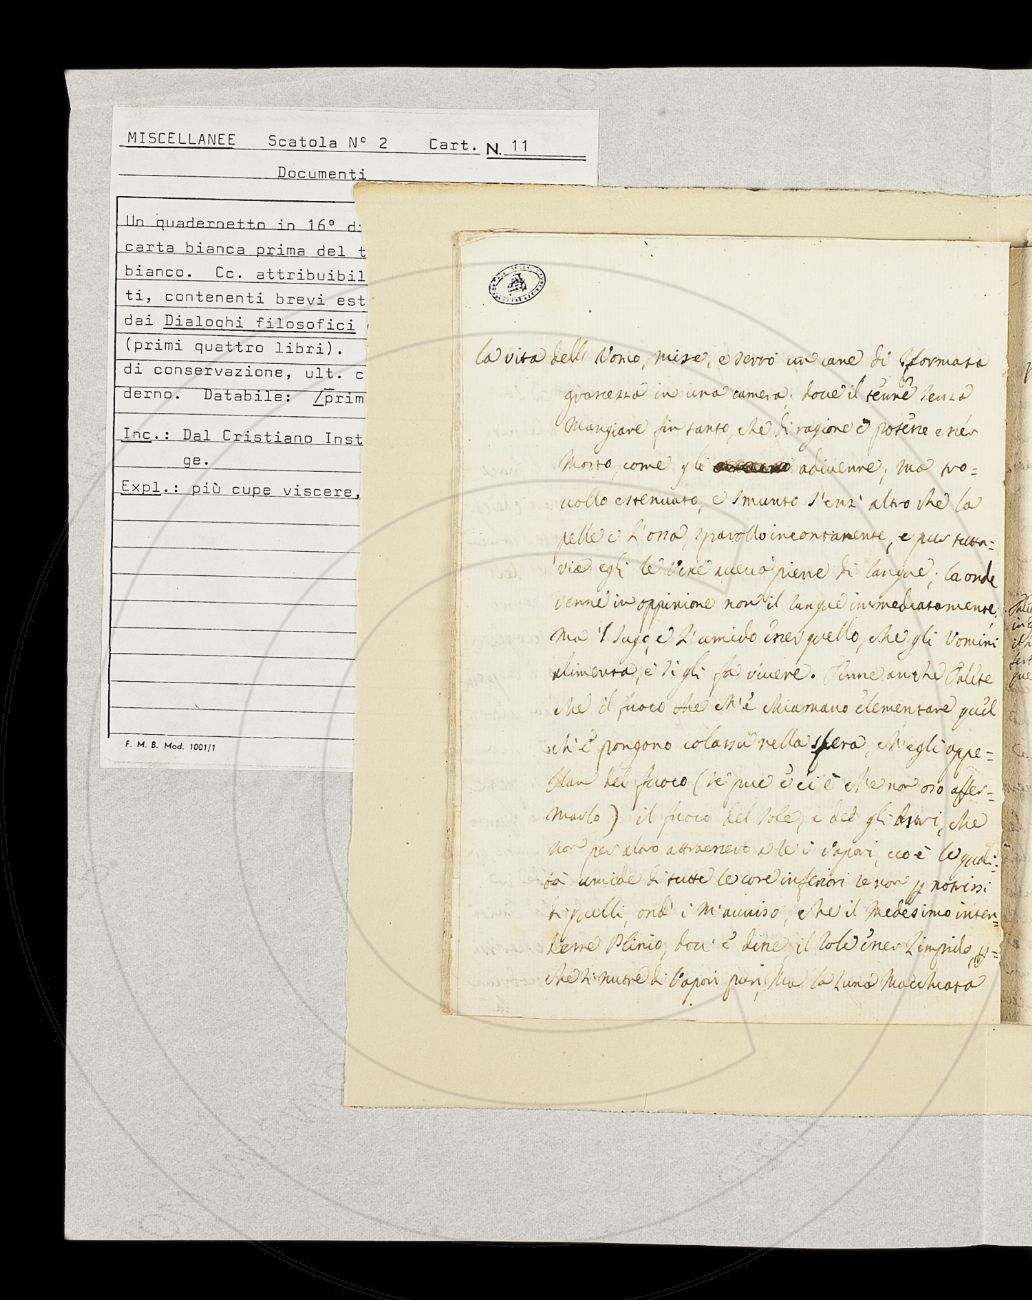 MISCELLANEE Scatola N° 2 Cart. N. 11
Documenti
Un quadernetto in 16° di
carta bianca prima del t
bianco. Cc. attribuibil
ti, contenenti brevi est
dai Dialoghi filosofici
(primi quattro libri).
di conservazione, ult. c
derno. Databile: /prim
Inc.: Dal Cristiano Inst
ge.
Expl.: più cupe viscere,
F. M. B. Mod. 1001/1
la vita dell' Uomo, mise, e serrò un cane di sformata
grassezza in una camera: dove il tenne senza
mangiare fin tanto, che di ragione è potesse esser
morto, come gli adivenne; ma tro=
vollo estenuato, e smunto senz' altro che la
pelle e l'ossa, sparollo incontanente, e pur tutta=
via egli le vene aveva piene di sangue; la onde
venne in oppinione non il sangue immediatamente,
ma 'l sugo, e l'umido esser quello, che gli Uomini
alimenta, e si gli fa vivere. Tenne anche Talete
che il fuoco che ch'e' chiamano elementare quel
ch'e' pongono colassù nella sfera, ch'egli appe=
llan del fuoco (se pure e' ci è che non oso affer=
marlo) il fuoco del Sole, e del gli Astri, che
non per altro attraessero a se i vapori, cioè le quali=
tà umide di tutte le cose inferiori se non p nutrirsi
di quelli, ond' i' m'avviso, che il medesimo inten=
desse Plinio, dov' e' disse il Sole esser limpido, p=
che si nutre di vapori puri, ma la Luna macchiata